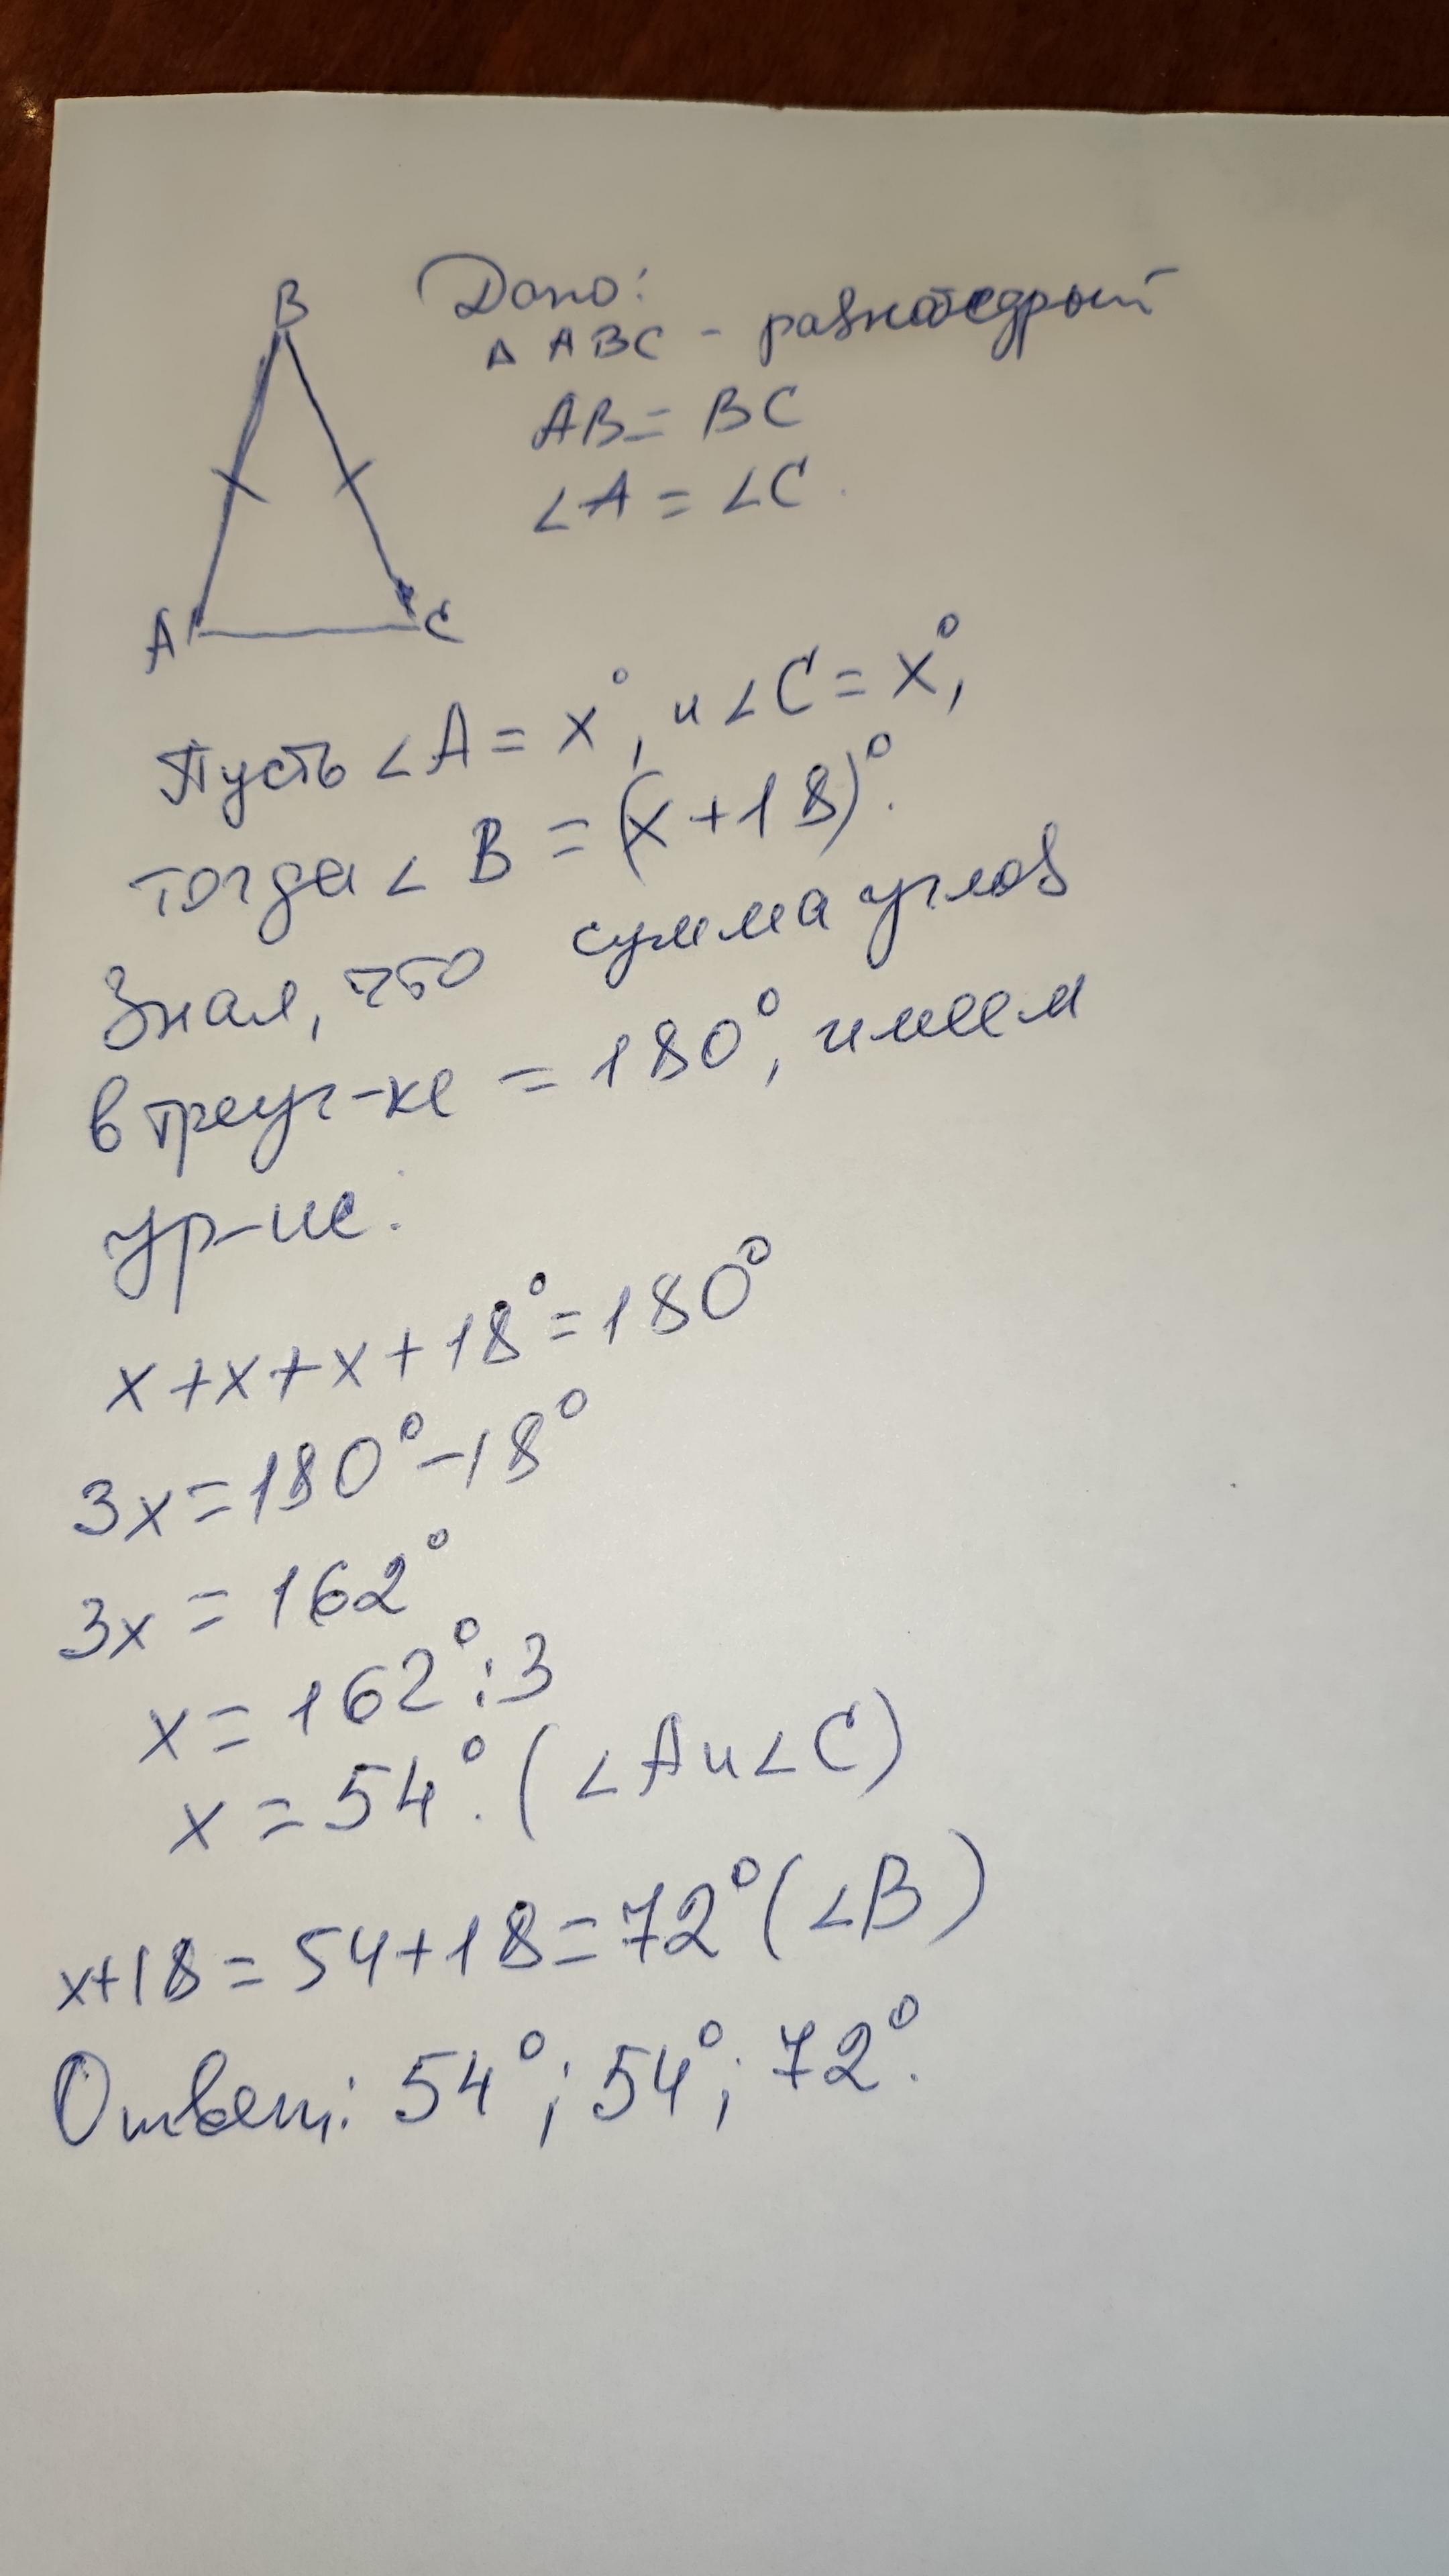 B
A
C
Дано:
Δ ABC - равнобедрый
AB = BC
∠A = ∠C.
Пусть ∠A = x°, и ∠C = x°,
тогда ∠ B = (x + 18)°.
Зная, что сумма углов
в треуг-ке = 180°, имеем
ур-ие:
x + x + x + 18° = 180°
3x = 180° - 18°
3x = 162°
x = 162° : 3
x = 54°. (∠A и ∠C)
x+18 = 54+18 = 72° (∠B)
Ответ: 54°; 54°; 72°.